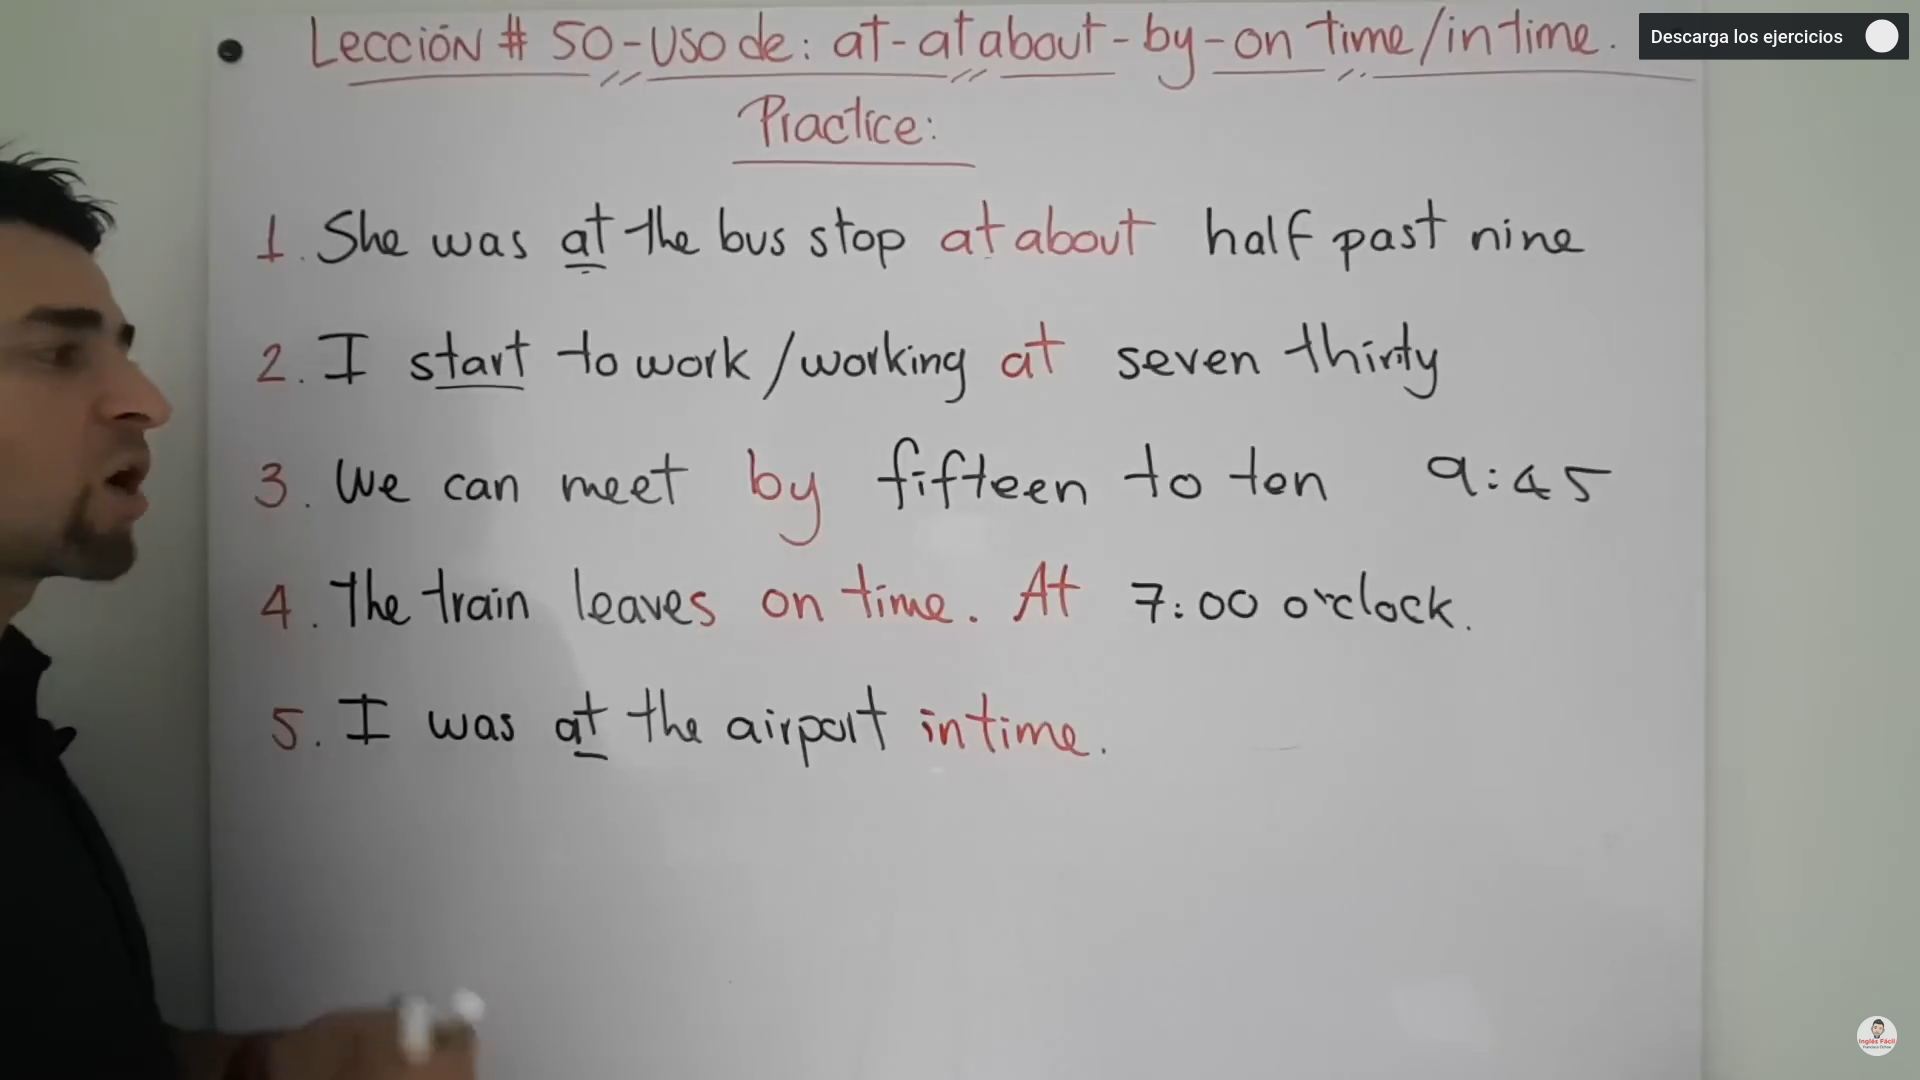 Lección # 50 - Uso de: at - at about - by - on time / in time.
Descarga los ejercicios
Practice:
1. She was at the bus stop at about half past nine
2. I start to work / working at seven thirty
3. We can meet by fifteen to ten 9:45
4. The train leaves on time. At 7:00 o'clock.
5. I was at the airport in time.
Inglés Fácil